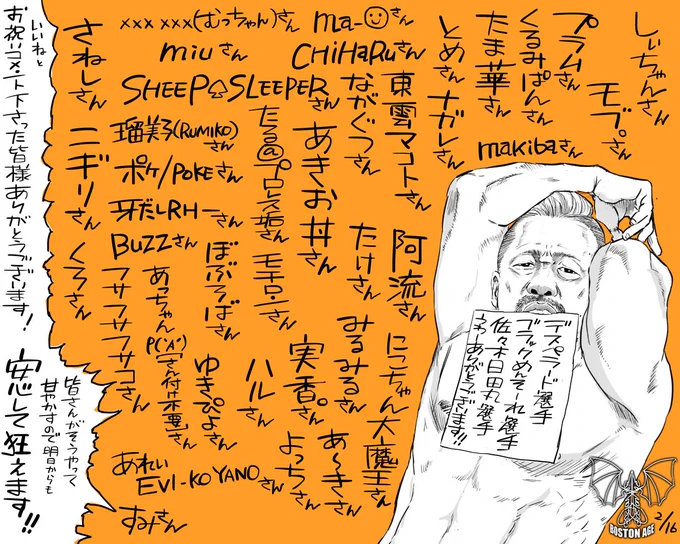 しぃちゃんさん
モブ。さん
プラムさん
くるみぱんさん
たま華さん
とめさん
ナガレさん
makibaさん
ma-☺さん
CHiHaRuさん
東雲マコトさん
ながぐつさん
×××　×××(むっちゃん)さん
miuさん
SHEEP♤SLEEPERさん
さねしさん
ニギリさん
くろさん
瑠美子(RUMIKO)さん
ポケ/POKEさん
牙だしRHーさん
BUZZさん
たる@プロレス垢さん
モモロンさん
あきお丼さん
阿流さん
たけさん
ぼぶそばさん
あっちゃんP(`A')(さん付け不要)さん
フサフサフサコさん
にこちゃん大魔王さん
みるみるさん
実香。さん
ハルさん
ゆきぴよさん
あ〜きさん
よっちさん
あれいEVI-KO YANOさん
すみさん
デスペラード選手
ブラックめんそーれ選手
佐々木日田丸選手
うわーありがとうございます!!
いいねと
お祝いコメント下さった皆様ありがとうございます!
皆さんがそうやって
甘やかすので明日からも
安心して狂えます!!
BOSTON AGE
2/16